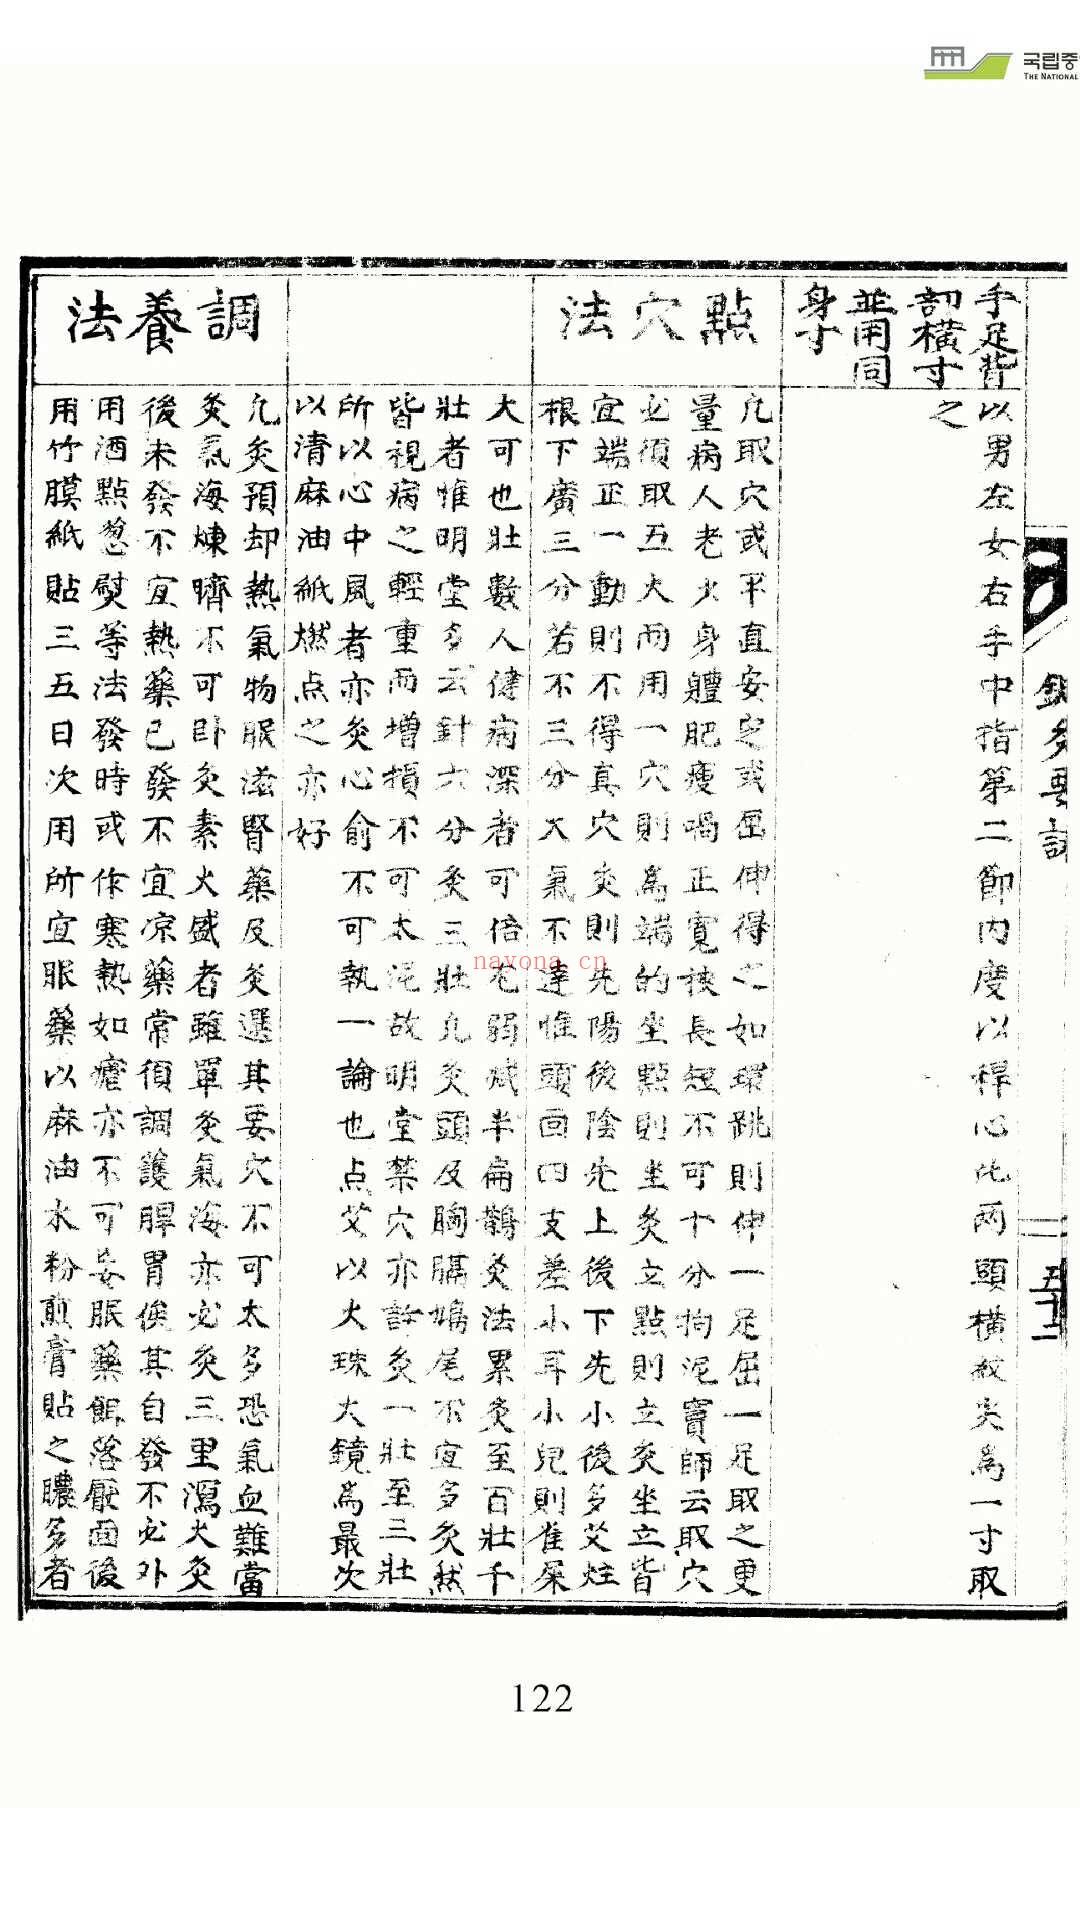 국립중
THE NATIONAL
鍼灸要訣
五十二
手足背
部橫寸
並用同
身寸
以男左女右手中指第二節内度以稈心比兩頭橫紋尖爲一寸取
之
點穴法
凡取穴或平直安定或屈伸得之如環跳則伸一足屈一足取之更
量病人老少身軆肥瘦喎正寬挾長短不可十分拘泥竇師云取穴
必須取五穴而用一穴則爲端的坐點則坐灸立點則立灸坐立皆
宜端正一動則不得真穴灸則先陽後陰先上後下先小後多艾炷
根下廣三分若不三分火氣不達惟頭面四支差小耳小兒則雀屎
大可也壯數人健病深者可倍老弱减半扁鵲灸法累灸至百壯千
壯者惟明堂多云針六分灸三壯凡灸頭及胸膈鳩尾不宜多灸然
皆視病之輕重而增損不可太泥故明堂禁穴亦許灸一壯至三壯
所以心中風者亦灸心俞不可執一論也点艾以火珠火鏡爲最次
以清麻油紙燃点之亦好
調養法
凡灸預却熱氣物眼滋腎藥及灸選其要穴不可太多恐氣血難當
灸氣海煉臍不可卧灸素火盛者雖單灸氣海亦必灸三里瀉火灸
後未發不宜熱藥已發不宜凉藥常須調護脾胃俟其自發不必外
用酒點葱熨等法發時或作寒熱如瘧亦不可妄眼藥餌落厭面後
用竹膜紙貼三五日次用所宜眼藥以麻油水粉煎膏貼之膿多者
nayona.cn
122